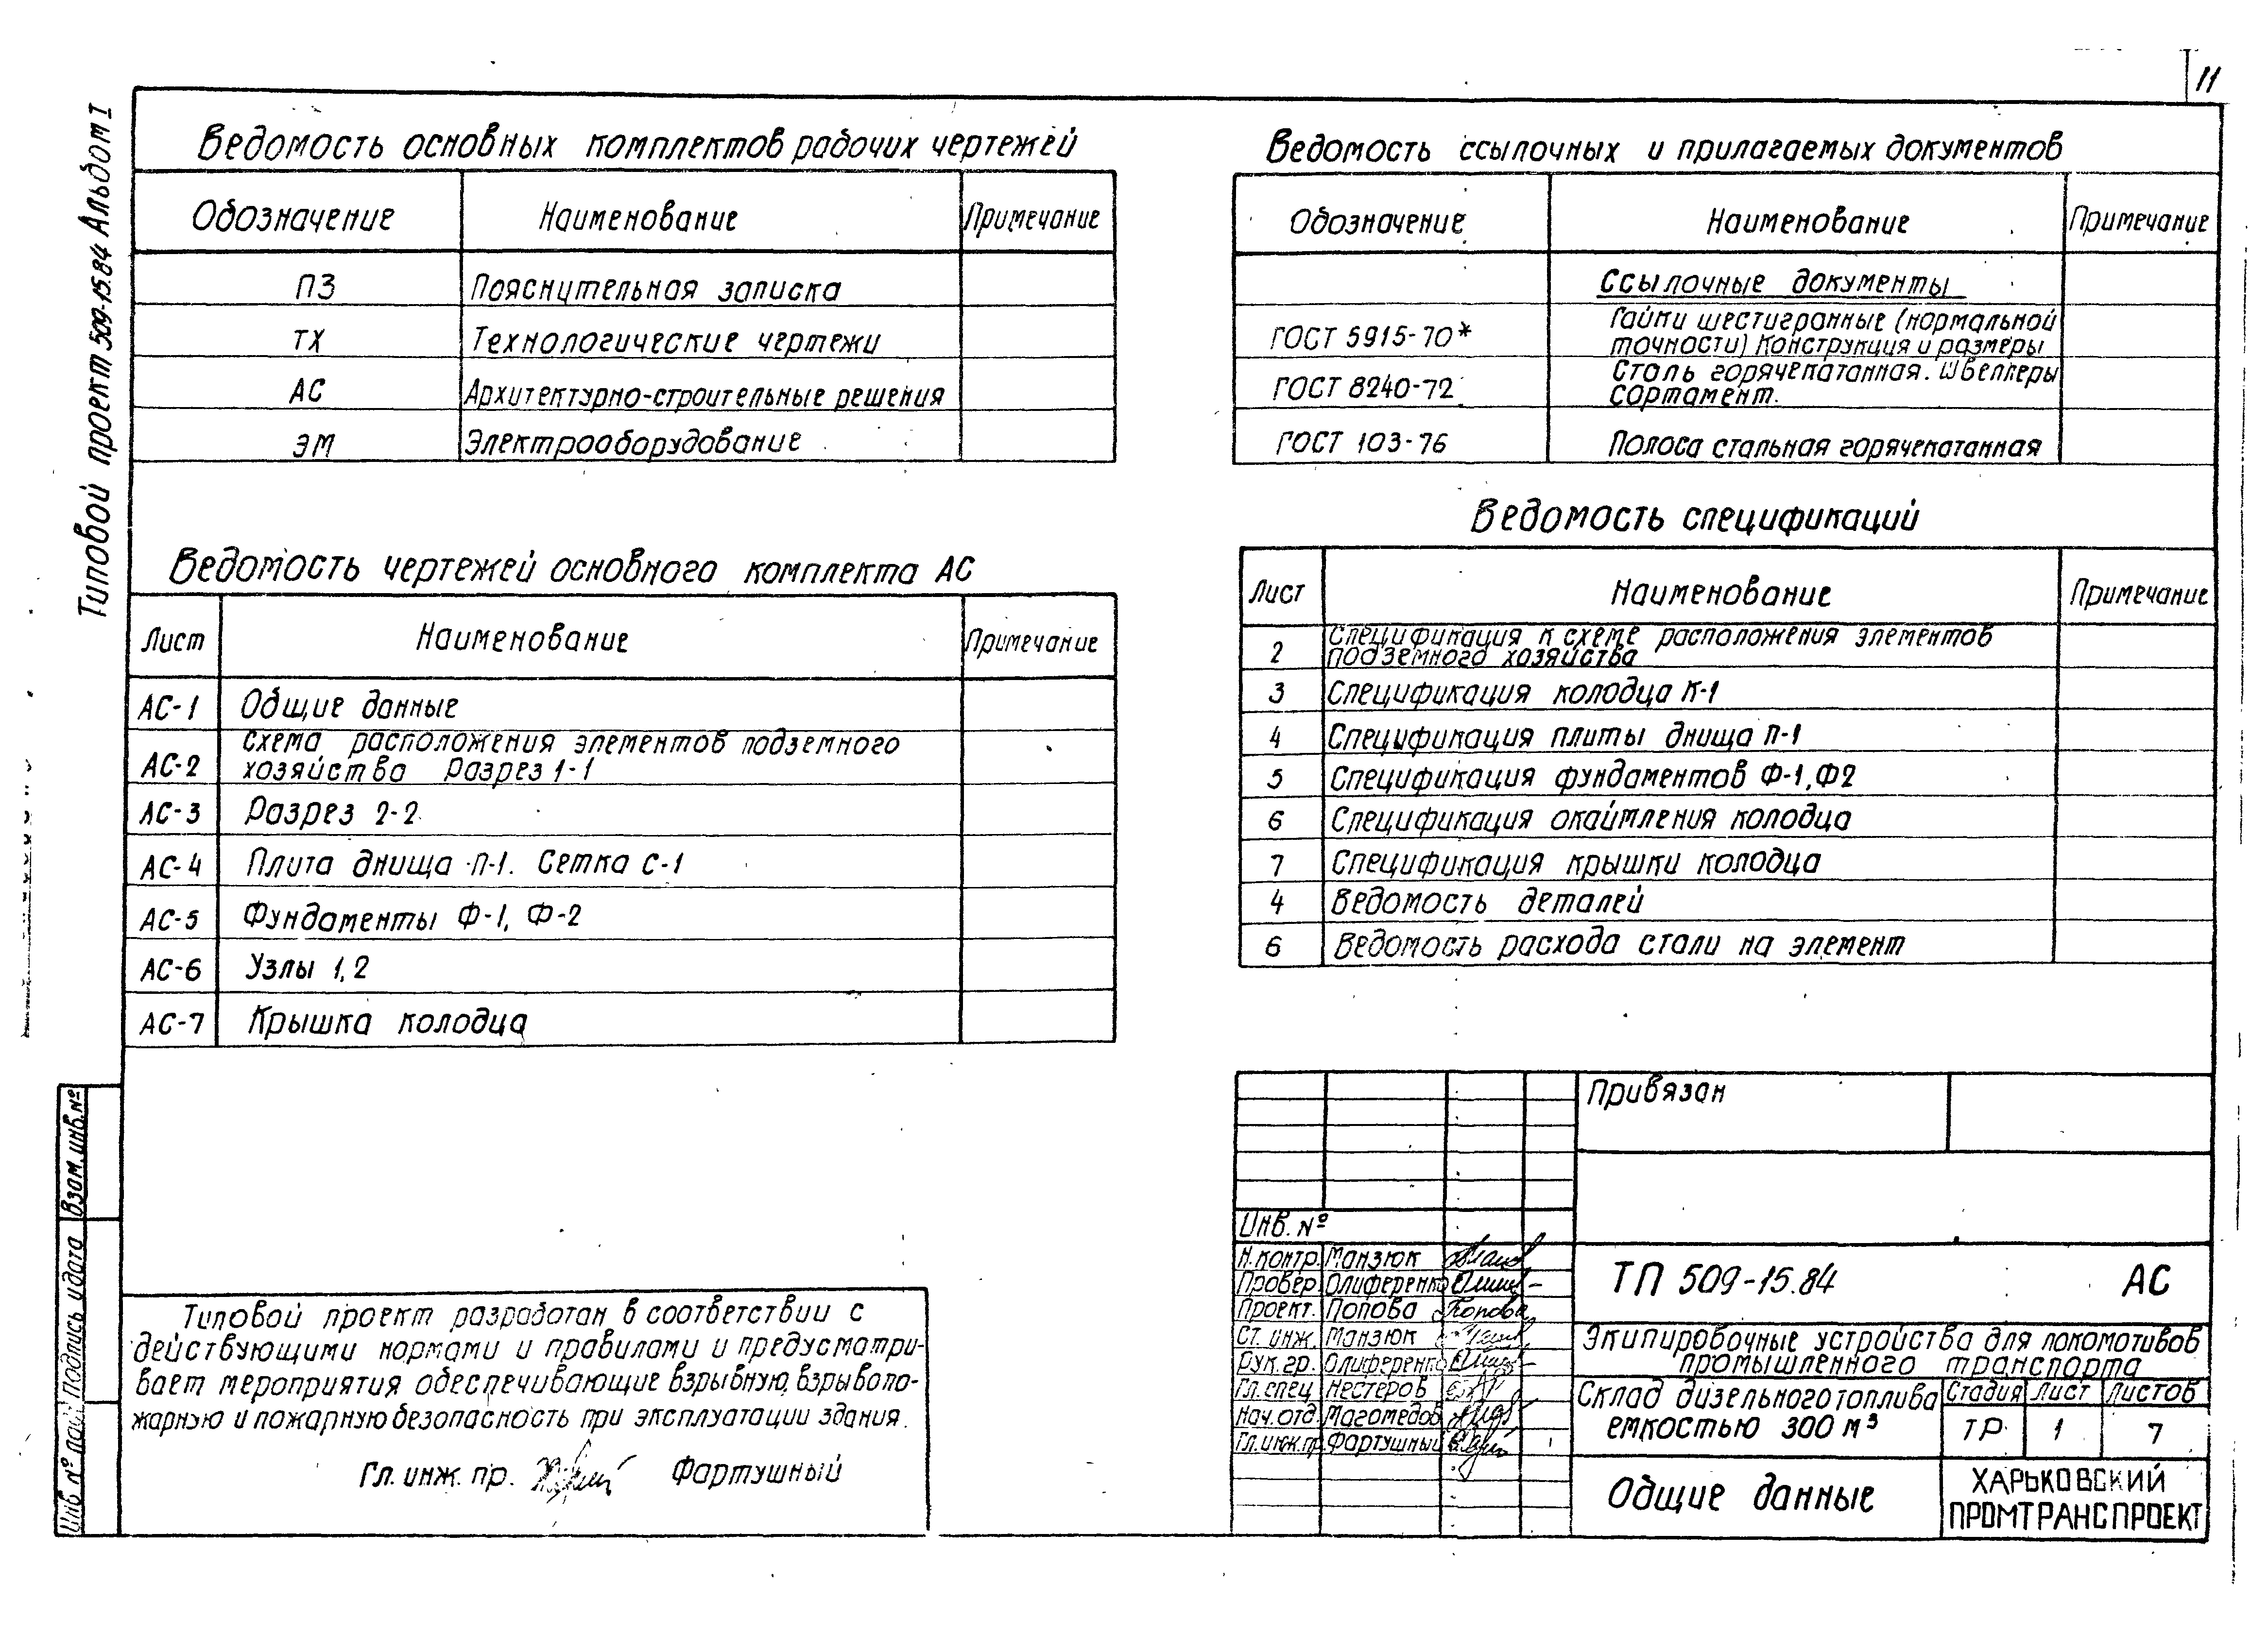 11
Типовой проект 509-15.84 Альбом I
Ведомость основных комплектов рабочих чертежей
Обозначение Наименование Примечание
ПЗ Пояснительная записка
ТХ Технологические чертежи
АС Архитектурно-строительные решения
ЭМ Электрооборудование
Ведомость чертежей основного комплекта АС
Лист Наименование Примечание
АС-1 Общие данные
АС-2 Схема расположения элементов подземного
хозяйства Разрез 1-1
АС-3 Разрез 2-2
АС-4 Плита днища П-1. Сетка С-1
АС-5 Фундаменты Ф-1, Ф-2
АС-6 Узлы 1,2
АС-7 Крышка колодца
Ведомость ссылочных и прилагаемых документов
Обозначение Наименование Примечание
Ссылочные документы
ГОСТ 5915-70* Гайки шестигранные (нормальной
точности) Конструкция и размеры
ГОСТ 8240-72 Сталь горячекатанная. Швеллеры
Сортамент.
ГОСТ 103-76 Полоса стальная горячекатанная
Ведомость спецификаций
Лист Наименование Примечание
2 Спецификация к схеме расположения элементов
подземного хозяйства
3 Спецификация колодца К-1
4 Спецификация плиты днища П-1
5 Спецификация фундаментов Ф-1, Ф2
6 Спецификация окаймления колодца
7 Спецификация крышки колодца
4 Ведомость деталей
6 Ведомость расхода стали на элемент
Типовой проект разработан в соответствии с
действующими нормами и правилами и предусматри-
вает мероприятия обеспечивающие взрывную, взрывопо-
жарную и пожарную безопасность при эксплуатации здания.
Гл. инж. пр. Фартушный
Взам. инв. №
Подпись и дата
Инв № подл
Привязан
Инв. №
Н.контр. Манзюк
Провер. Олиференко
Проект. Попова Попова
Ст. инж. Манзюк
Рук. гр. Олиференко
Гл. спец. Нестеров
Нач. отд. Магомедов
Гл. инж. пр. Фартушный
ТП 509-15.84 АС
Экипировочные устройства для локомотивов
промышленного транспорта
Склад дизельного топлива
емкостью 300 м³
Стадия Лист Листов
ТР 1 7
Общие данные
ХАРЬКОВСКИЙ
ПРОМТРАНСПРОЕКТ